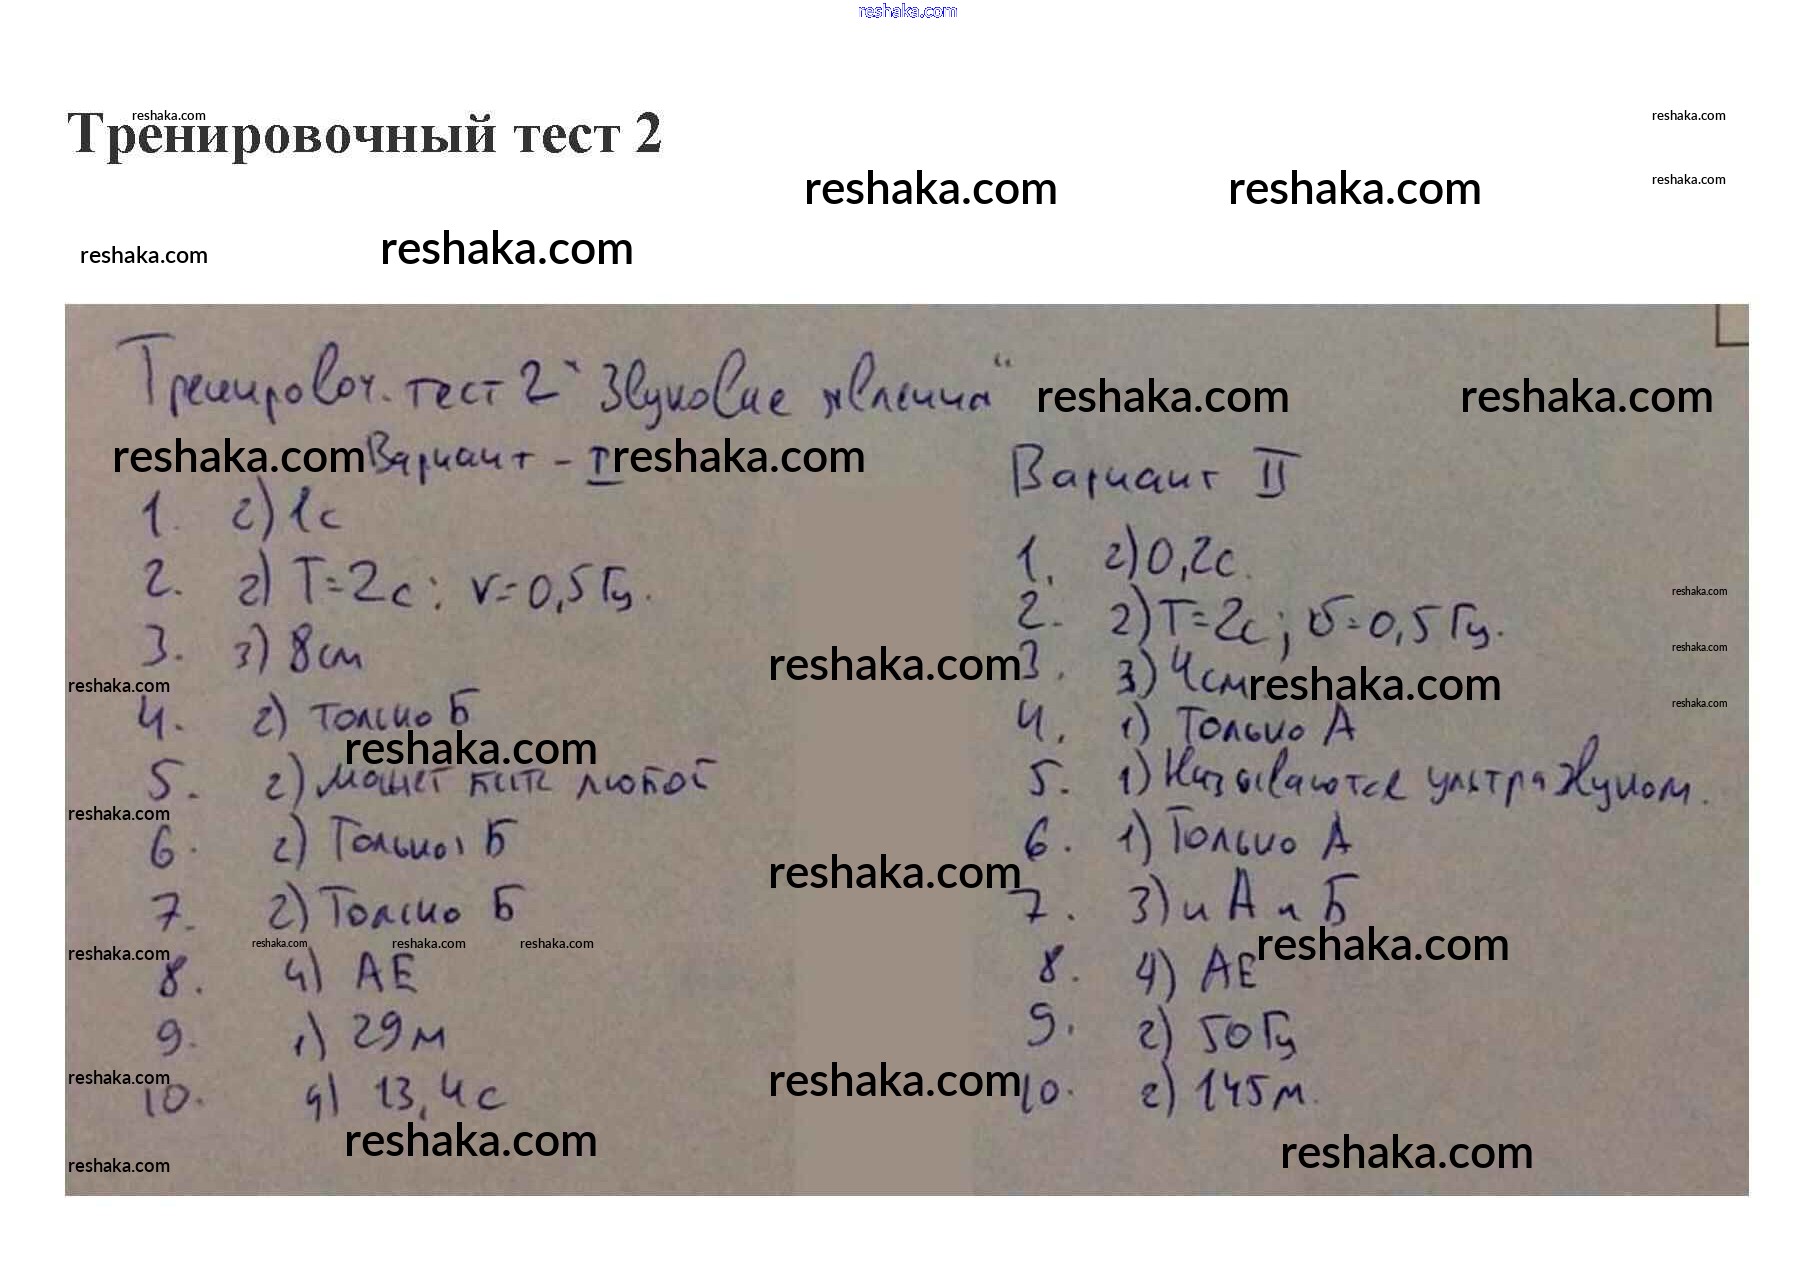 reshaka.com
Тренировочный тест 2
reshaka.com
reshaka.com
reshaka.com
reshaka.com
reshaka.com
reshaka.com
reshaka.com
Тренировоч. тест 2 "Звуковые явления"
reshaka.com
reshaka.com
reshaka.com
Вариант - I
reshaka.com
1. 2) 1с
2. 2) T=2с; ν=0,5Гц.
3. 3) 8см
reshaka.com
4. 2) только Б
reshaka.com
5. 2) может быть любой
reshaka.com
6. 2) Только Б
7. 2) Только Б
reshaka.com
reshaka.com
reshaka.com
reshaka.com
8. 4) АЕ
9. 1) 29м
reshaka.com
10. 4) 13,4с
reshaka.com
reshaka.com
reshaka.com
reshaka.com
reshaka.com
Вариант II
1. 2) 0,2с.
reshaka.com
2. 2) T=2с; υ=0,5Гц.
reshaka.com
3. 3) 4см
reshaka.com
reshaka.com
4. 1) Только А
5. 1) Называются ультразвуком.
6. 1) Только А
7. 3) и А и Б
reshaka.com
8. 4) АЕ
9. 2) 50Гц
10. 2) 145м.
reshaka.com